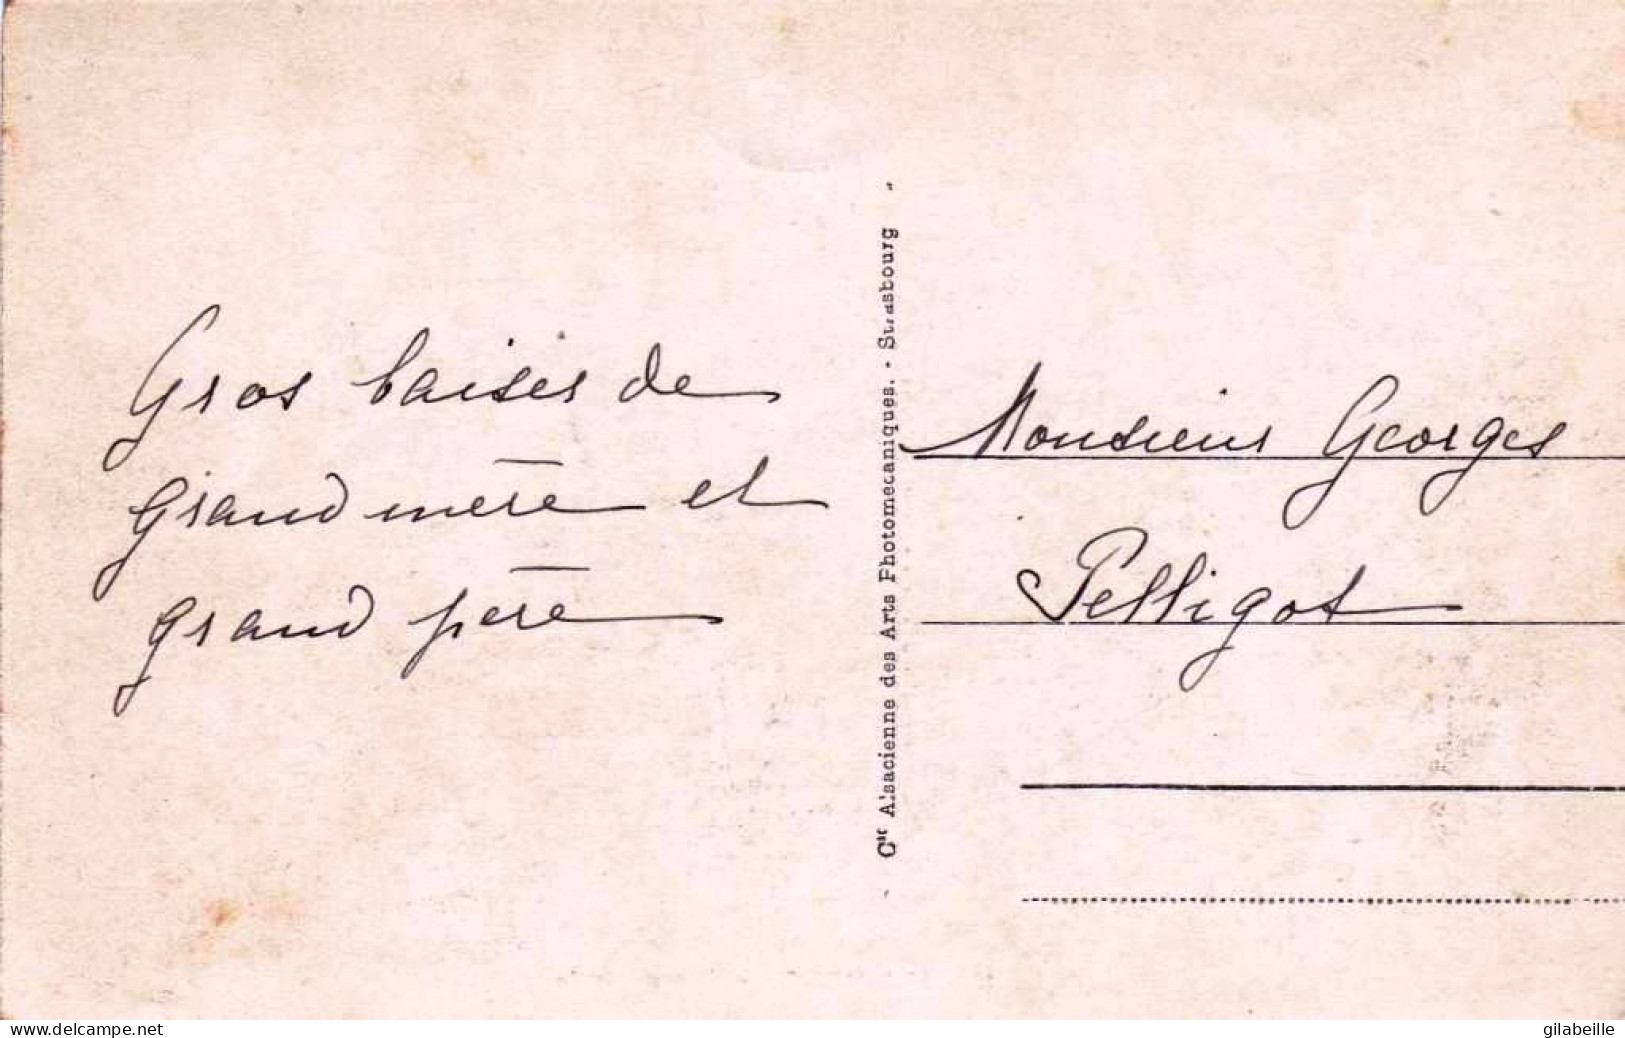 Gros baisers de
Grand mère et
grand père
Cie Alsacienne des Arts Photomecaniques. - Strasbourg
Monsieur Georges
Pelligot
www.delcampe.net
gilabeille